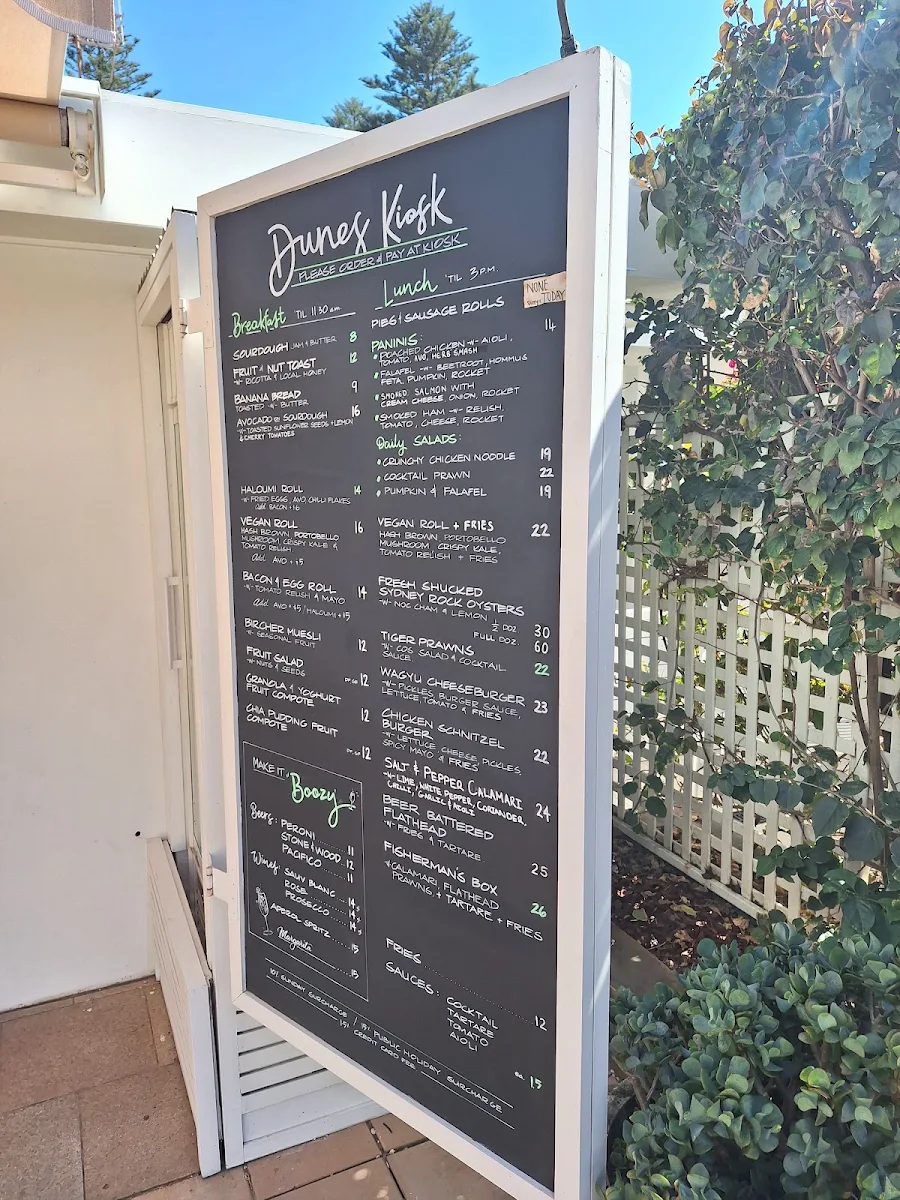 Dunes Kiosk
PLEASE ORDER & PAY AT KIOSK
Breakfast TIL 11 30 am
SOURDOUGH JAM & BUTTER 8
FRUIT & NUT TOAST 12
-W- RICOTTA & LOCAL HONEY
BANANA BREAD 9
TOASTED -W- BUTTER
AVOCADO on SOURDOUGH 16
-W- TOASTED SUNFLOWER SEEDS + LEMON
& CHERRY TOMATOES
HALOUMI ROLL 14
-W- FRIED EGGS, AVO, CHILLI FLAKES
add BACON +
VEGAN ROLL 16
HASH BROWN, PORTOBELLO
MUSHROOM, CRISPY KALE &
TOMATO RELISH
Add AVO +5
BACON & EGG ROLL 14
-W- TOMATO RELISH & MAYO
Add AVO +5 / HALOUMI +5
BIRCHER MUESLI 12
-W- SEASONAL FRUIT
FRUIT SALAD
-W- NUTS & SEEDS 12
GRANOLA & YOGHURT
FRUIT COMPOTE 12
CHIA PUDDING FRUIT
COMPOTE 12
MAKE IT Boozy
Beers: PERONI 11
STONE & WOOD 12
PACIFICO 11
Wines: SAUV BLANC 14
ROSE 14
PROSECCO 14
APEROL SPRITZ 15
Margarita 15
Lunch 'TIL 3PM.
PIES & SAUSAGE ROLLS
NONE
TODAY
PANINIS: 14
POACHED CHICKEN -W- AIOLI,
TOMATO, AVO, HERB SMASH
FALAFEL -W- BEETROOT, HOMMUS
FETA, PUMPKIN, ROCKET
SMOKED SALMON WITH
CREAM CHEESE, ONION, ROCKET
SMOKED HAM -W- RELISH,
TOMATO, CHEESE, ROCKET
Daily SALADS:
CRUNCHY CHICKEN NOODLE 19
COCKTAIL PRAWN 22
PUMPKIN & FALAFEL 19
VEGAN ROLL + FRIES 22
HASH BROWN, PORTOBELLO
MUSHROOM, CRISPY KALE,
TOMATO RELISH + FRIES
FRESH SHUCKED
SYDNEY ROCK OYSTERS
-W- NOC CHAM & LEMON ½ DOZ 30
FULL DOZ. 60
TIGER PRAWNS
-W- COS SALAD & COCKTAIL
SAUCE 22
WAGYU CHEESEBURGER
-W- PICKLES, BURGER SAUCE,
LETTUCE, TOMATO & FRIES 23
CHICKEN SCHNITZEL
BURGER
-W- LETTUCE, CHEESE, PICKLES,
SPICY MAYO & FRIES 22
SALT & PEPPER CALAMARI
-W- LIME, WHITE PEPPER, CORIANDER,
CHILLI, GARLIC & AIOLI 24
BEER BATTERED
FLATHEAD
-W- FRIES & TARTARE 25
FISHERMAN'S BOX
CALAMARI, FLATHEAD
PRAWNS + TARTARE + FRIES 26
FRIES 12
SAUCES: COCKTAIL
TARTARE
TOMATO
AIOLI
ea 1.5
10% SUNDAY SURCHARGE / 15% PUBLIC HOLIDAY SURCHARGE
CREDIT CARD FEE